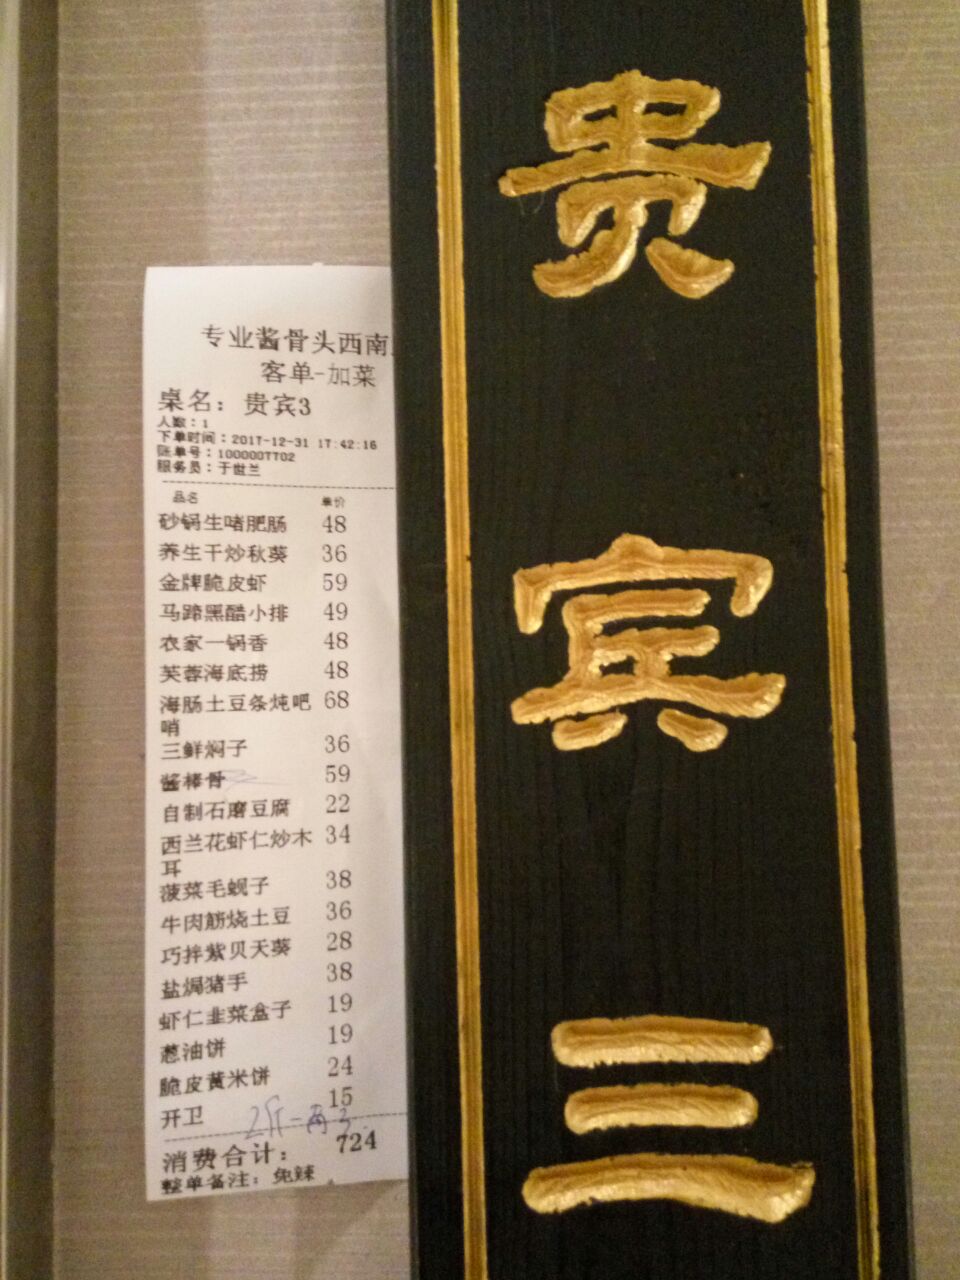 专业酱骨头西南
客单-加菜
桌名：贵宾3
人数：1
下单时间：2017-12-31 17:42:16
账单号：100000TT02
服务员：于世兰
品名 单价
砂锅生啫肥肠 48
养生干炒秋葵 36
金牌脆皮虾 59
马蹄黑醋小排 49
农家一锅香 48
芙蓉海底捞 48
海肠土豆条炖吧 68
哨
三鲜焖子 36
酱棒骨 59
自制石磨豆腐 22
西兰花虾仁炒木 34
耳
菠菜毛蚬子 38
牛肉筋烧土豆 36
巧拌紫贝天葵 28
盐焗猪手 38
虾仁韭菜盒子 19
葱油饼 19
脆皮黄米饼 24
开卫 15
消费合计： 724
整单备注：免辣
贵
宾
三